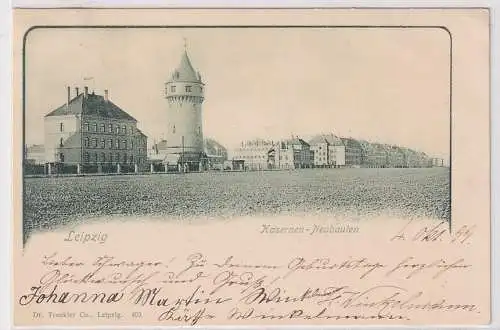 Leipzig
Kasernen-Neubauten
4. Okt. 99.
Lieber Schwager! Zu Deinem Geburtstage herzlichen
Glückwunsch und Gruß
Johanna Martin Winkelmann
Käthe Winkelmann
Dr. Trenkler Co., Leipzig. 403